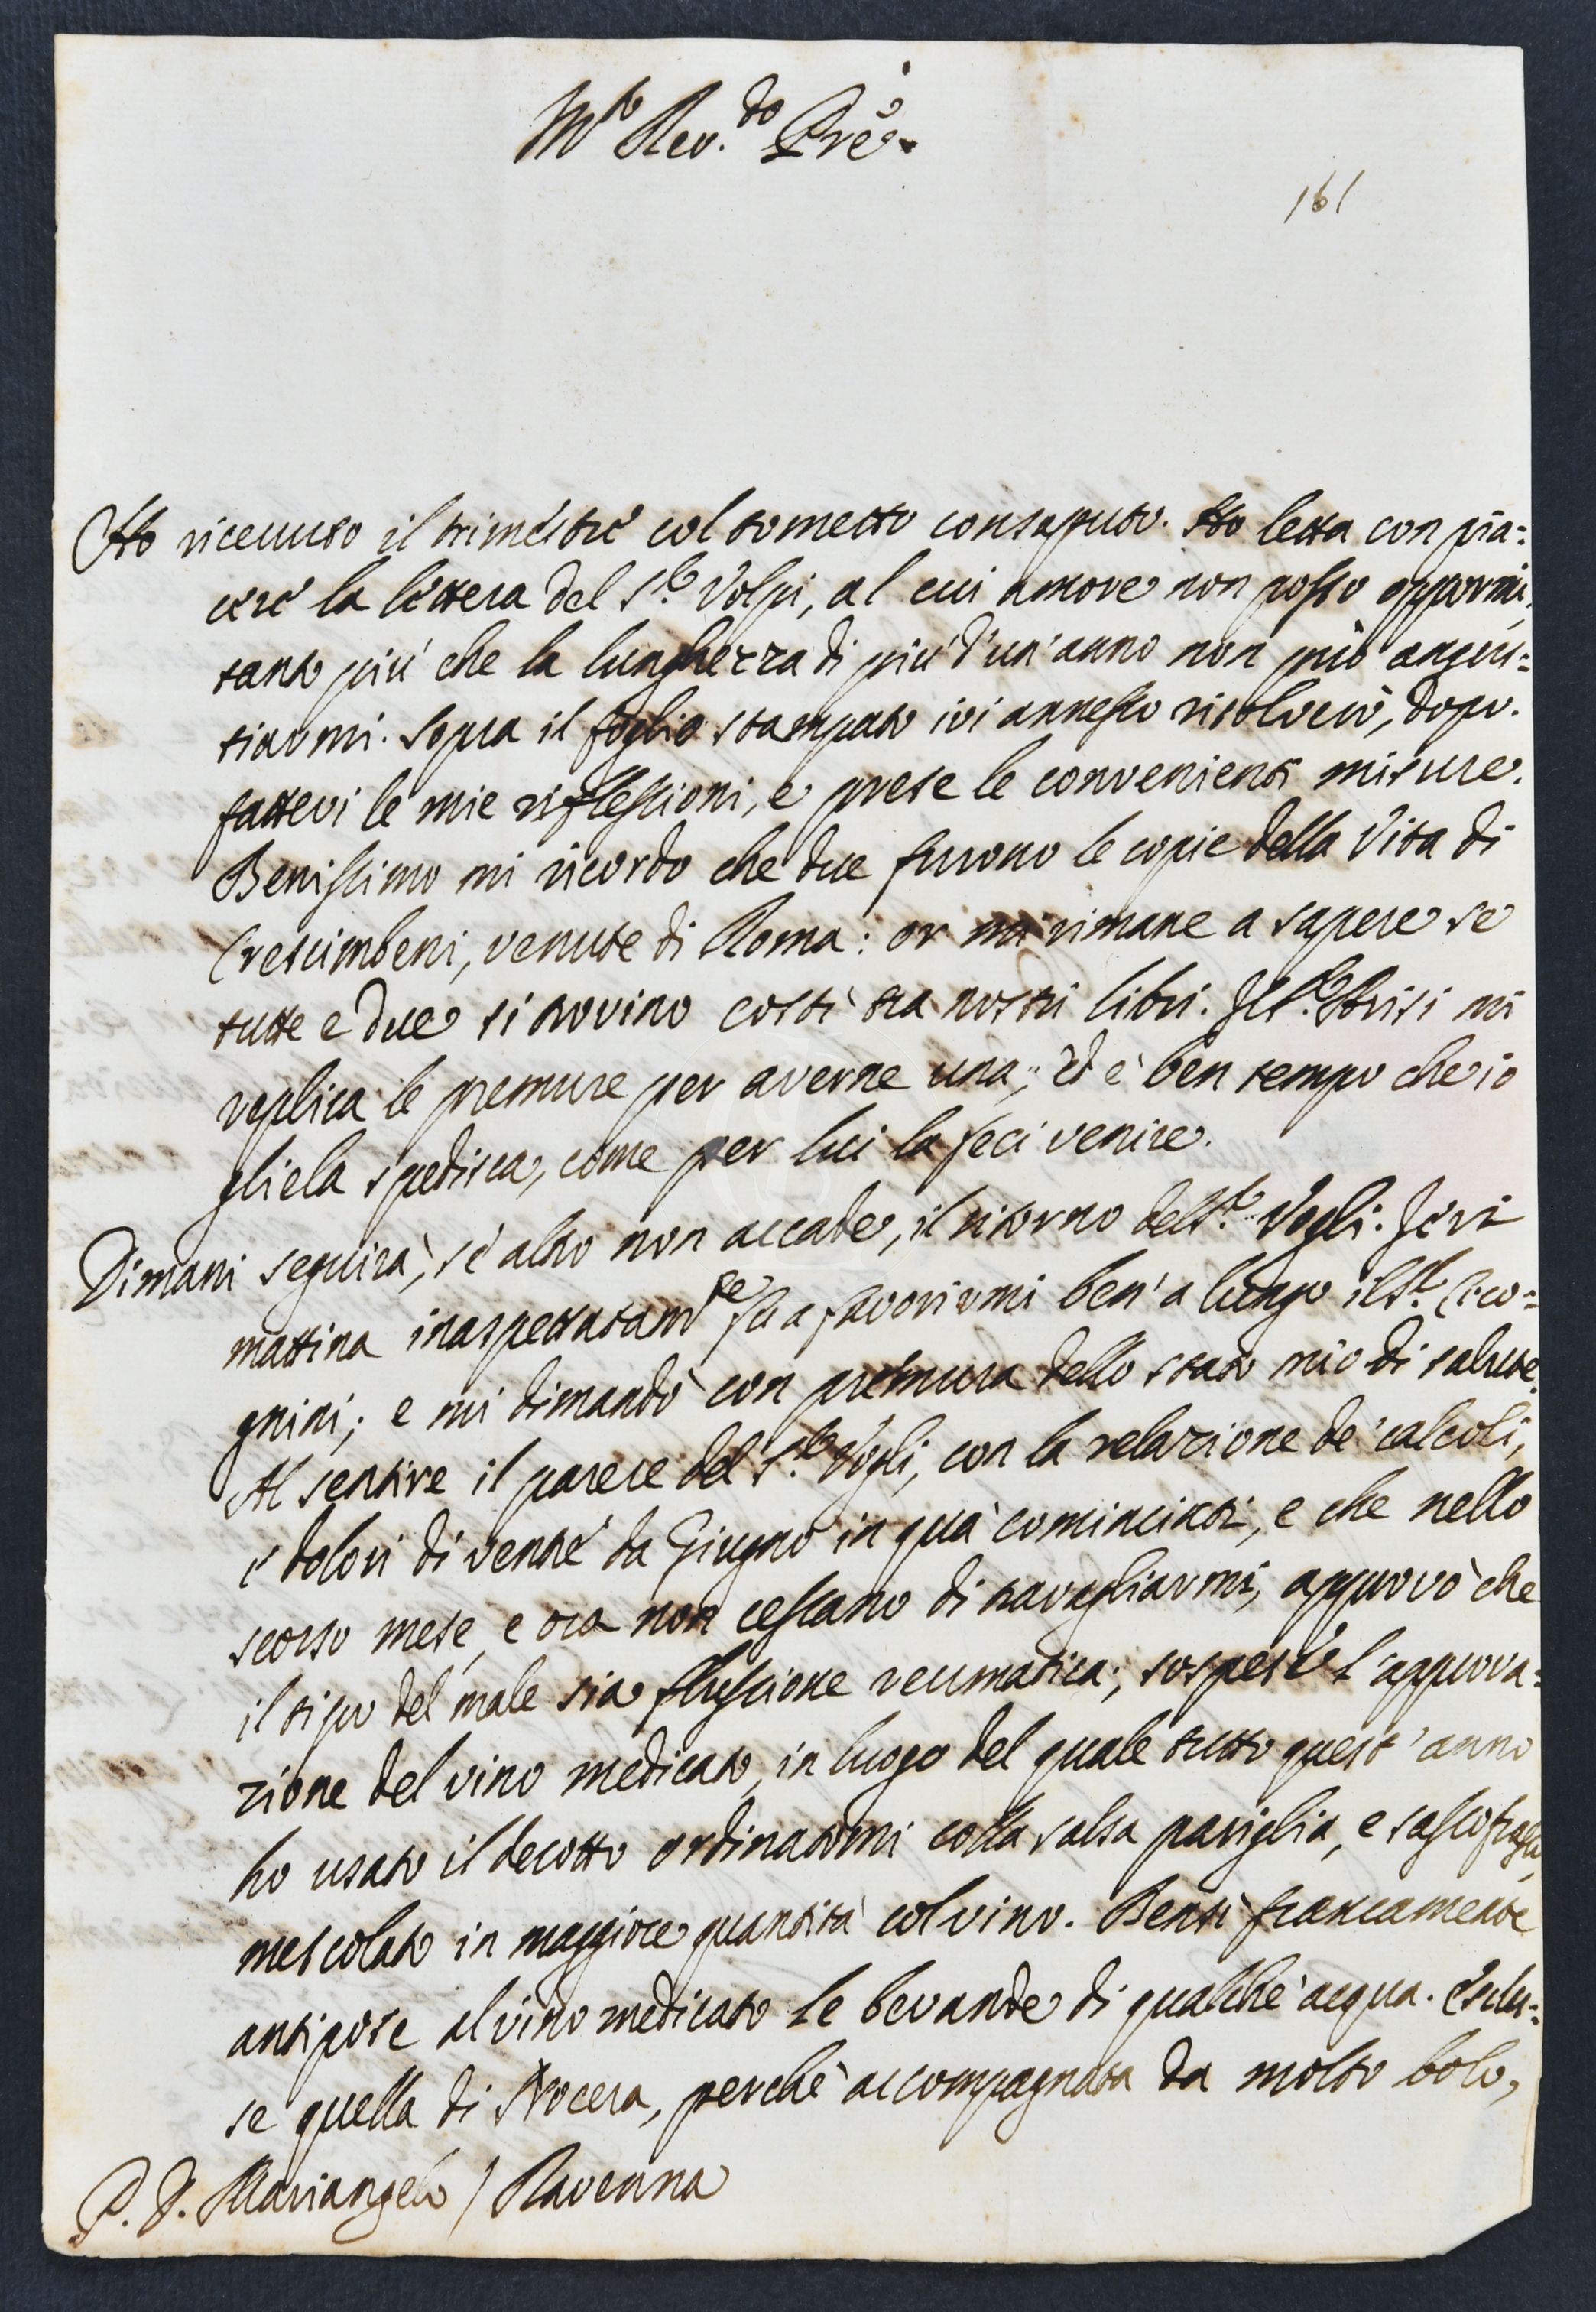 M.to Rev.do Pre.
161
Ho ricevuto il trimestre col tometto consaputo. Ho letta con pia=
cere la lettera del S.r Volpi, al cui amore non posso oppormi,
tanto più che la lunghezza di più d'un'anno non può angus=
tiarmi. Sopra il foglio stampato ivi annesso risolverò, dopo
fattevi le mie riflessioni, e prese le convenienti misure.
Benissimo mi ricordo che due furono le copie della Vita di
Crescimbeni, venute di Roma: or mi rimane a sapere se
tutte e due si trovino costì tra nostri libri. Il S.r Brisi mi
replica le premure per averne una; ed è ben tempo che io
gliela spedisca, come per lui la feci venire.
Dimani seguirà, se altro non accade, il ritorno del S.r Vogli. Jeri
mattina inaspettatam.te fu a favorirmi ben'a lungo il S.r Cico=
gnini; e mi dimandò con premura dello stato mio di salute.
Al sentire il parere del S.r Vogli, con la relazione de' calcoli,
e dolori di ventre da Giugno in quà cominciati, e che nello
scorso mese, e ora non cessano di travagliarmi, approvò che
il tipo del male sia flussione reumatica; sospese l'approva=
zione del vino medicato, in luogo del quale tutto quest'anno
ho usato il decotto ordinatomi colla salsa pariglia, e sassofrasso,
mescolato in maggiore quantità col vino. Bensì francamente
antipose al vino medicato le bevande di qualche acqua. Esclu=
se quella di Nocera, perchè accompagnata da molto bolo,
P. D. Mariangelo / Ravenna